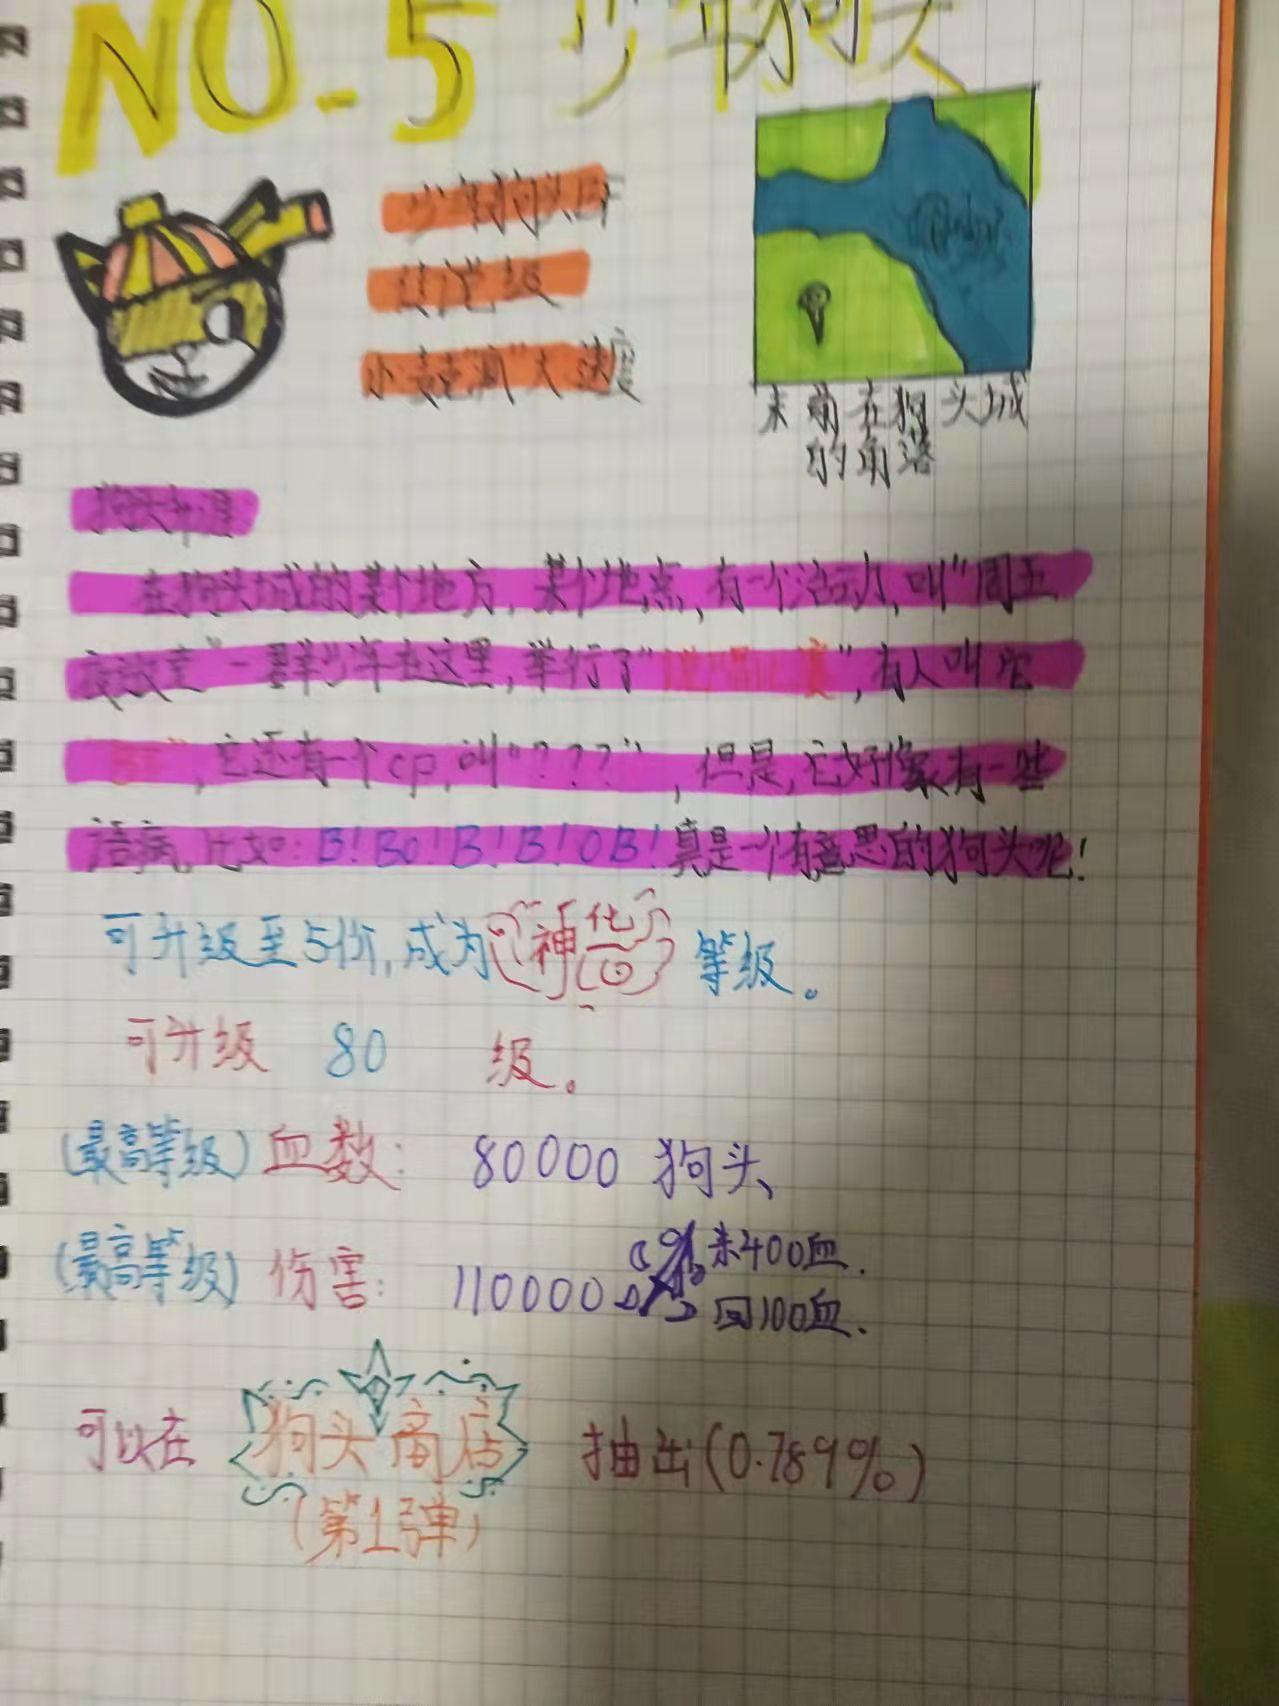 NO.5 少年狗头
少年狗头BF
传说级
小麦走"漏"大速度
未前在狗头城
的角落
狗头标准
在狗头城的某个地方,某个地点,有一个活动,叫"周五
夜放克"一群少年在这里,举行了" ",有人叫它
"BF",它还有个cp,叫"???",但是,它好像有一些
语病,比如:B!BO!B!B!OB!真是一个有意思的狗头呢!
可升级至5价,成为神化等级。
可升级 80 级。
(最高等级)血数: 80000 狗头
(最高等级)伤害: 110000 来400血.
回100血.
可以在 狗头商店 抽出(0.789%)
(第1弹)